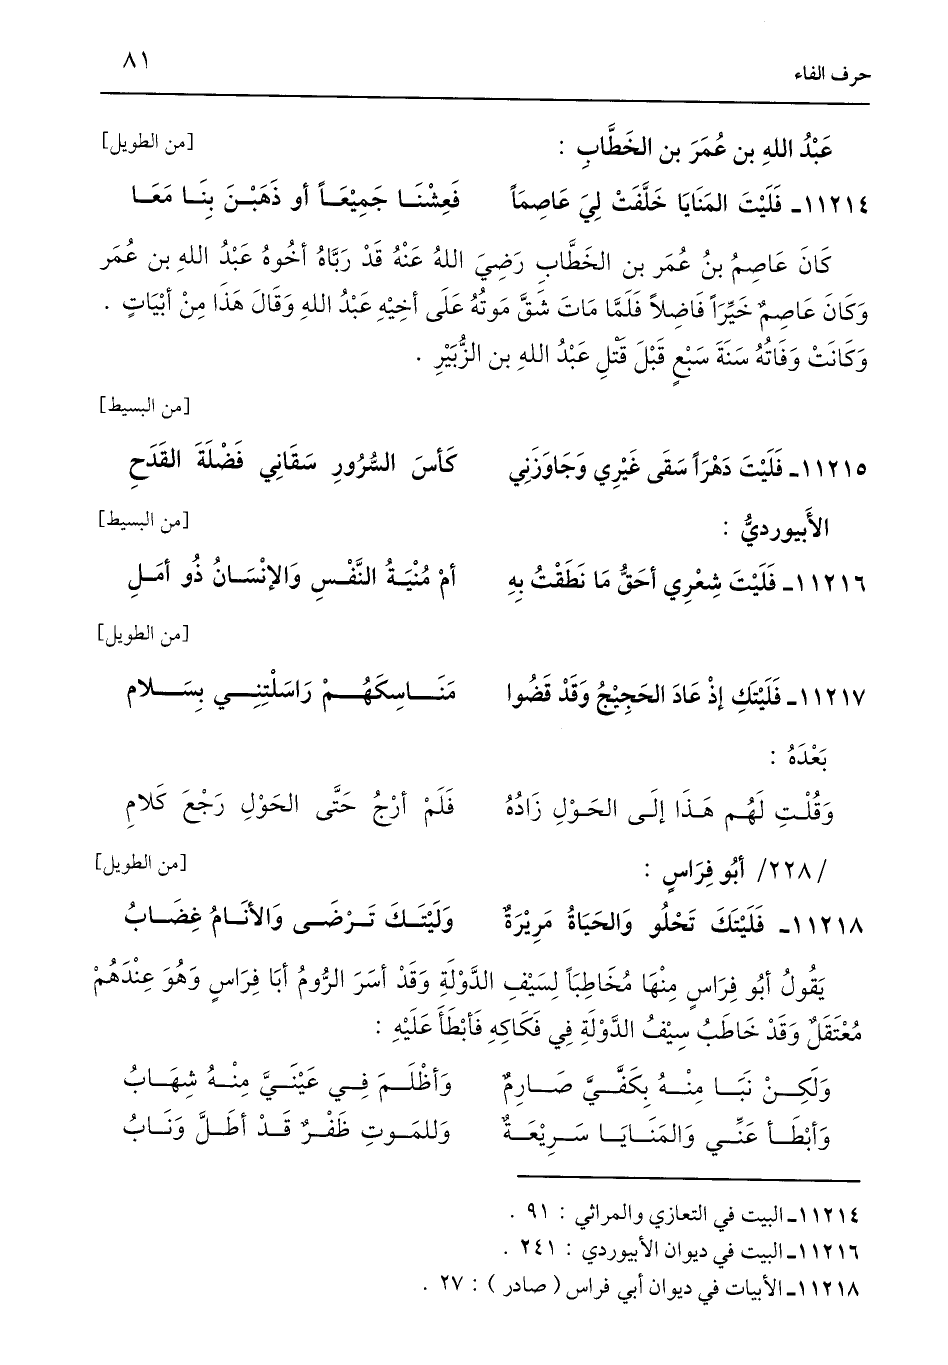 حرف الفاء ٨١
عَبْدُ اللهِ بن عُمَرَ بن الخَطَّابِ : [من الطويل]
١١٢١٤ـ فَلَيْتَ المَنَايَا خَلَّفَتْ لِيَ عَاصِمَاً فَعِشْنَا جَمِيْعَاً أو ذَهَبْنَ بِنَا مَعَا
كَانَ عَاصِمُ بنُ عُمَر بن الخطَّابِ رَضِيَ اللهُ عَنْهُ قَدْ رَبَّاهُ أخُوهُ عَبْدُ اللهِ بن عُمَر
وَكَانَ عَاصِمٌ خَيِّرَاً فَاضِلاً فَلَمَّا مَاتَ شَقَّ مَوتُهُ عَلَى أخِيْهِ عَبْدُ اللهِ وَقَالَ هَذَا مِنْ أبْيَاتٍ .
وَكَانَتْ وَفَاتُهُ سَنَةَ سَبْعٍ قَبْلَ قَتْلِ عَبْدُ اللهِ بن الزُّبَيْرِ .
[من البسيط]
١١٢١٥ـ فَلَيْتَ دَهْرَاً سَقَى غَيْرِي وَجَاوَزَنِي كَأسَ السُّرُورِ سَقَانِي فَضْلَةَ القَدَحِ
الأَبيورديُّ : [من البسيط]
١١٢١٦ـ فَلَيْتَ شِعْرِي أحَقُّ مَا نَطَقْتُ بِهِ أمْ مُنْيَةُ النَّفْسِ وَالإنْسَانُ ذُو أمَلِ
[من الطويل]
١١٢١٧ـ فَلَيْتَكِ إذْ عَادَ الحَجِيْجُ وَقَدْ قَضُوا مَنَاسِكَهُمْ رَاسَلْتِنِي بِسَلامِ
بَعْدَهُ :
وَقُلْتِ لَهُم هَذَا إلَى الحَوْلِ زَادُهُ فَلَمْ أرْجُ حَتَّى الحَوْلِ رَجْعَ كَلامِ
/٢٢٨/ أبُو فِرَاسٍ : [من الطويل]
١١٢١٨ـ فَلَيْتَكَ تَحْلُو وَالحَيَاةُ مَرِيْرَةٌ وَلَيْتَكَ تَرْضَى وَالأنَامُ غِضَابُ
يَقُولُ أبُو فِرَاسٍ مِنْهَا مُخَاطِبَاً لِسَيْفِ الدَّوْلَةِ وَقَدْ أسَرَ الرُّومُ أبَا فِرَاسٍ وَهُوَ عِنْدَهُمْ
مُعْتَقَلٌ وَقَدْ خَاطَبُ سيْفُ الدَّوْلَةِ فِي فَكَاكِهِ فَأبْطَأَ عَلَيْهِ :
وَلَكِنْ نَبَا مِنْهُ بِكَفَّيَّ صَارِمٌ وَأظْلَمَ فِي عَيْنَيَّ مِنْهُ شِهَابُ
وَأبْطَأ عَنِّي وَالمَنَايَا سَرِيْعَةٌ وَللمَوتِ ظَفْرٌ قَدْ أطَلَّ وَنَابُ
١١٢١٤ـ البيت في التعازي والمراثي : ٩١ .
١١٢١٦ـ البيت في ديوان الأبيوردي : ٢٤١ .
١١٢١٨ـ الأبيات في ديوان أبي فراس ( صادر ) : ٢٧ .